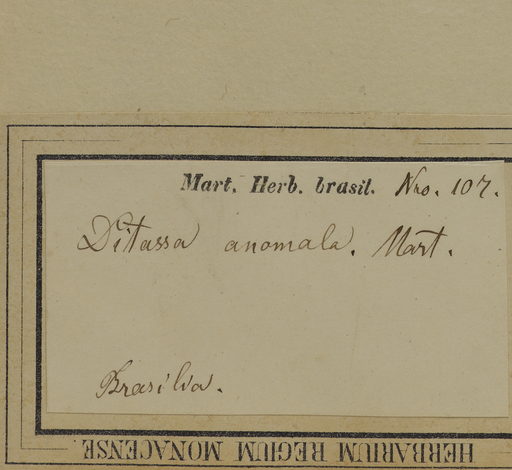 Mart. Herb. brasil. Nro. 107.
Ditassa anomala. Mart.
Brasilia.
HERBARIUM REGIUM MONACENSE.